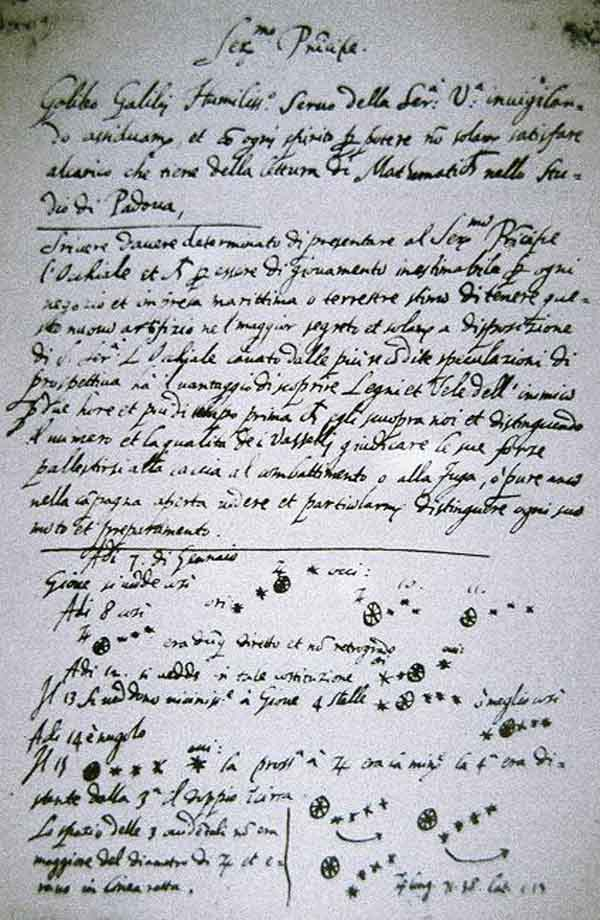 Ser.mo Principe.
Galileo Galilei Humiliss.o Servo della Ser.a V.a invigilan-
do assiduam.te, et cõ ogni spirito p potere nõ solam.te satisfare
alcarico che tiene della lettura di Mathematich. nello Stu-
dio di Padova,
Scrivere davere determinato di presentare al Ser.mo Principe
l'Occhiale et p essere di giovamento inestimabile p ogni
negozio et impresa marittima o terrestre stimo di tenere que-
sto nuovo artifizio nel maggior segreto et solam.te a disposizione
di S. Ser.a L'Occhiale cavato dalle più recõdite speculazioni di
prospettiva hà il vantaggio di scoprire Legni et Vele dell'inimico
p due hore et più di tempo prima egli scuopra noi et distinguendo
il numero et la qualità dei Vasselli giudicare le sue forze
pallestirsi alla caccia al combattimento o alla fuga, ò pure anco
nella cãpagna aperta vedere et particolarm.te distinguere ogni suo
moto et preparamento.
Adi 7. di Gennaio
Gione si vedde cosi
occi:
Adi 8 cosi
ori:
10.
11.
era dũq diretto et nõ retrogrado
Adi 12. si vedde in tale costituzione
Il 13 si veddono à Giove 4 stelle
ò meglio cosi
Adi 14 è nugolo
Il 15
la pross.a à ♃ era la min.e la 4.a era di-
stante dalla 3.a il doppio
Lo spazio delle 3 occidẽtali nõ era
maggiore del diametro di ♃ et e-
rano in linea retta.
♃ long. 71.38 Lat. 1.13